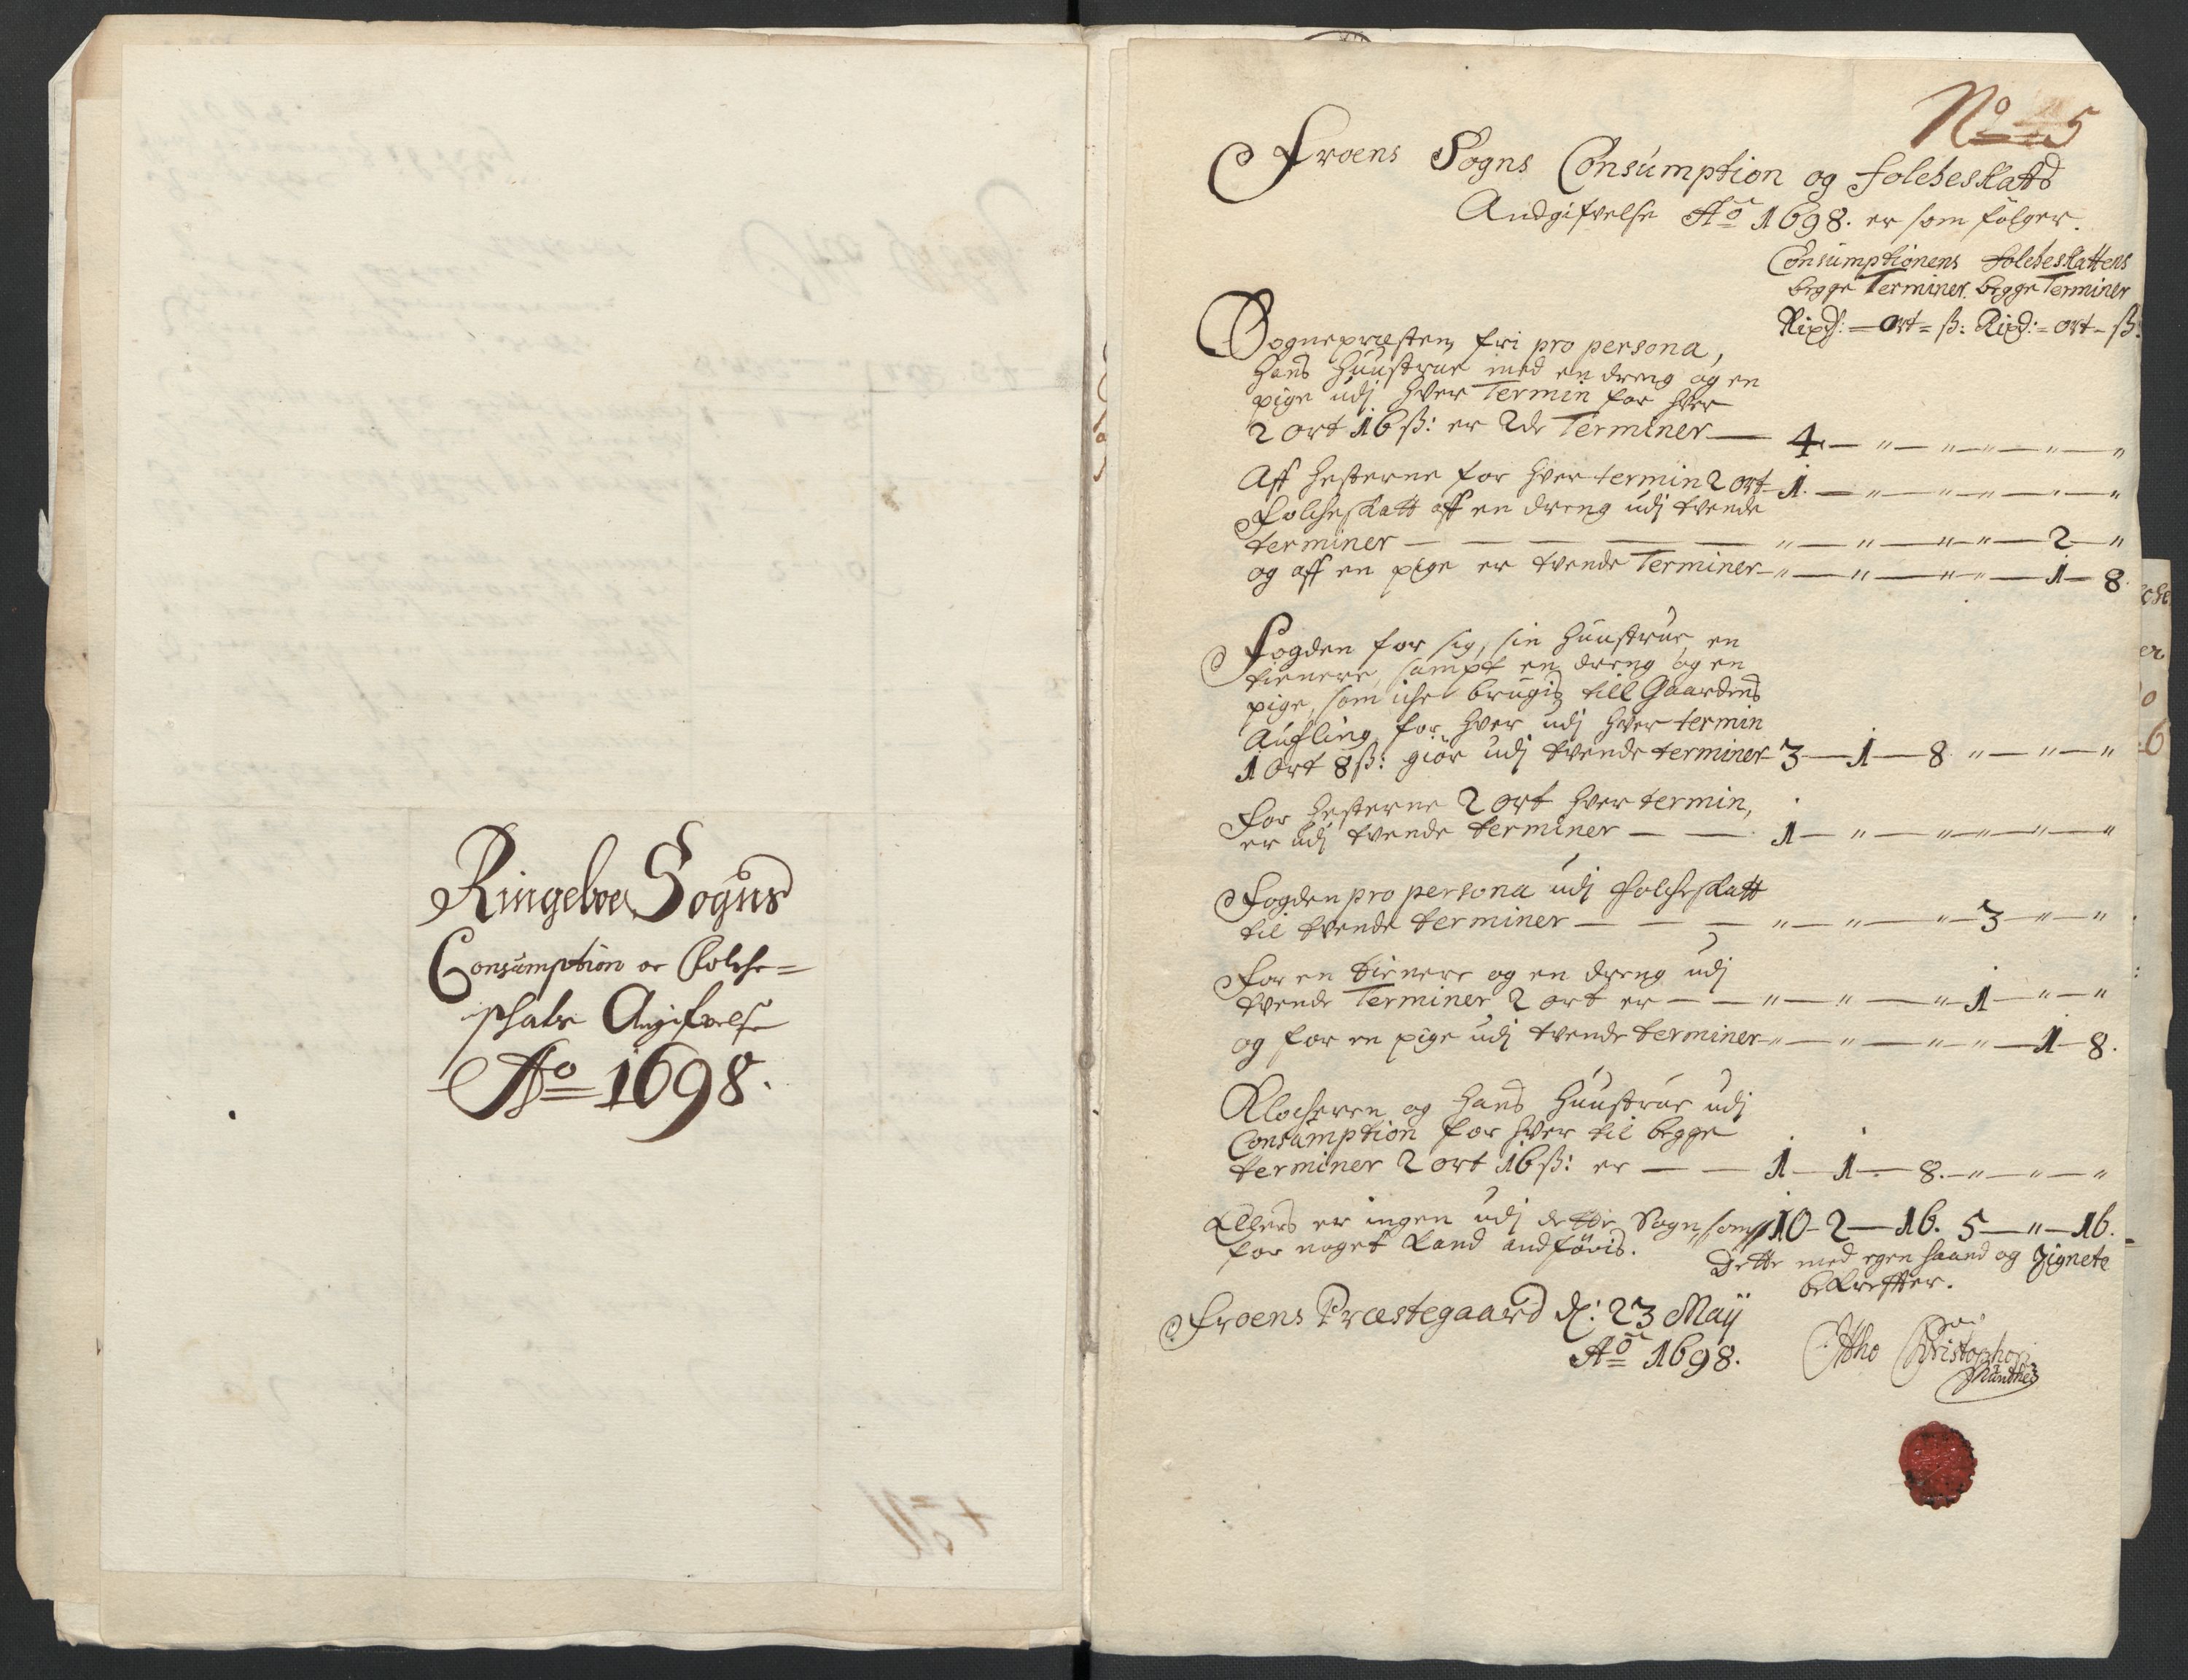 Ringeboe Sogns
Consumption oc Folche=
schats Angifvelse
Ao 1698.
No 5
Froens Sogns Consumption og Folcheskatts
Andgifvelse Ao 1698. er som følger.
Consumptionens Folcheskattens
begge Terminer. begge Terminer
Rixd: — Ort = ß: Rixd: = ort — ß:
Sognepræsten fri pro persona,
hans Huustrue med en dreng og en
pige udj hver Termin for hver
2 ort 16 ß: er 2de Terminer — 4. — " — " — " — " — "
Aff hesterne for hver termin 2 ort — 1. — " — " — " — " — "
Folcheskatt aff en dreng udj tvende
terminer — — — — — " — " — " — " — 2 — "
og aff en pige er tvende Terminer — " — " — " — " — 1 — 8.
Fogden for sig, sin Huustrue, en
tienere, sampt en dreng og en
pige, som iche brugis till Gaardens
Aufling, for hver udj hver termin
1 Ort 8 ß: giør udj tvende terminer — 3 — 1 — 8 " — " — "
For hesterne 2 ort hver termin,
er udj tvende terminer — — 1 — " — " — " — " — "
Fogden pro persona udj folcheskatt
til tvende terminer — — — " — " — " — 3 — " — "
For en tienere og en dreng udj
tvende Terminer 2 ort er — — " — " — " — 1 — " — "
og for en pige udj tvende terminer — " — " — " — " — 1 — 8.
Klocheren og hans Huustrue udj
Consumption for hver til begge
terminer 2 ort 16 ß: er — — 1 — 1 — 8. — " — " — "
Ellers er ingen udj dette Sogn, som 10 — 2 — 16. 5 — " — 16.
for noget kand andføris.
Dette med egen haand og Zignete
bekreffter.
Froens Præstegaard d: 23 Maij
Ao 1698.
Otho Christophors:
Munthe